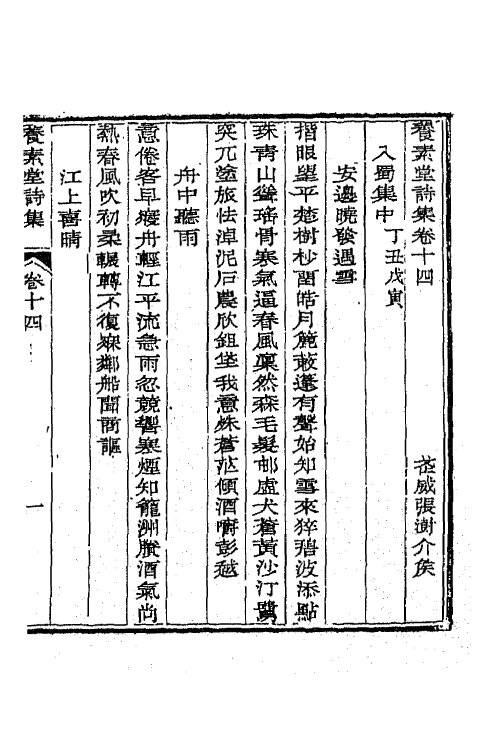 養素堂詩集卷十四
武威張澍介侯
入蜀集中 丁丑戊寅
安邊曉發遇雪
揩眼望平楚樹杪閣皓月簏蔌蓬有聲始知雪來猝碧波添點
珠青山聳瑤骨寒氣逼春風凜然森毛髮邨虛犬蒼黃沙汀鷺
突兀塗旅怯淖泥后農欣鉏垡我意殊蒼茫傾酒嚼彭𧑅
舟中聽雨
意倦客早瘦舟輕江平流急雨忽競響寒煙知籠洲賸酒氣尚
熱春風吹初柔輾轉不復寐鄰船聞商謳
江上喜晴
養素堂詩集
卷十四
一